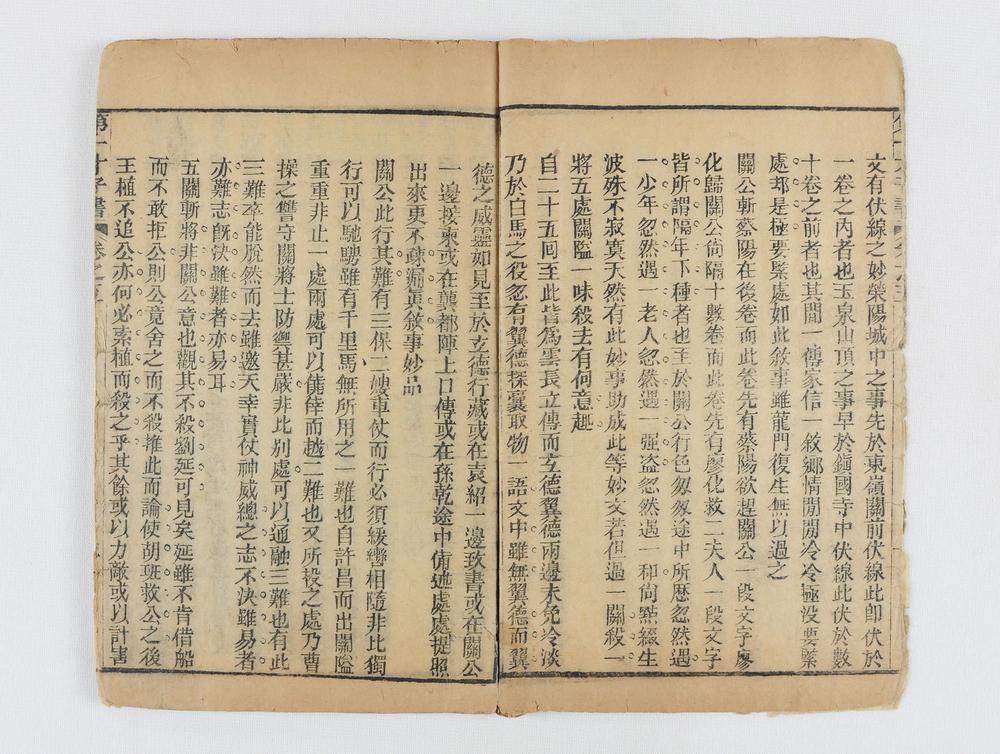 文有伏線之妙榮陽城中之事先於東嶺關前伏線此即伏於
一卷之內者也玉泉山頂之事早於鎮國寺中伏線此伏於數
十卷之前者也其間一傳家信一敘鄉情閒閒冷冷極没要緊
處却是極要緊處如此敘事雖龍門復生無以過之
關公斬蔡陽在後卷而此卷先有蔡陽欲趕關公一段文字廖
化歸關公尙隔十數卷而此卷先有廖化救二夫人一段文字
皆所謂隔年下種者也至於關公行色匆匆途中所歷忽然遇
一少年忽然遇一老人忽然遇一强盗忽然遇一和尙點綴生
波殊不寂寞天然有此妙事助成此等妙文若但過一關殺一
將五處關隘一味殺去有何意趣
自二十五囘至此皆爲雲長立傳而玄德翼德兩邊未免冷淡
乃於白馬之役忽有翼德探囊取物一語文中雖無翼德而翼
德之威靈如見至於玄德行藏或在袁紹一邊致書或在關公
一邊接柬或在龔都陣上口傳或在孫乾途中備述處處提照
出來更不疎漏眞敘事妙品
關公此行其難有三保二嫂車仗而行必須緩轡相隨非比獨
行可以馳騁雖有千里馬無所用之一難也自許昌而出關隘
重重非止一處兩處可以僥倖而越二難也又所投之處乃曹
操之讐守關將士防禦甚嚴非比别處可以通融三難也有此
三難卒能脫然而去雖邀天幸實仗神威總之志不決雖易者
亦難志旣決雖難者亦易耳
五關斬將非關公意也觀其不殺劉延可見矣延雖不肯借船
而不敢拒公則公竟舍之而不殺推此而論使胡班救公之後
王植不追公亦何必索植而殺之乎其餘或以力敵或以計害
第一才子書 卷之